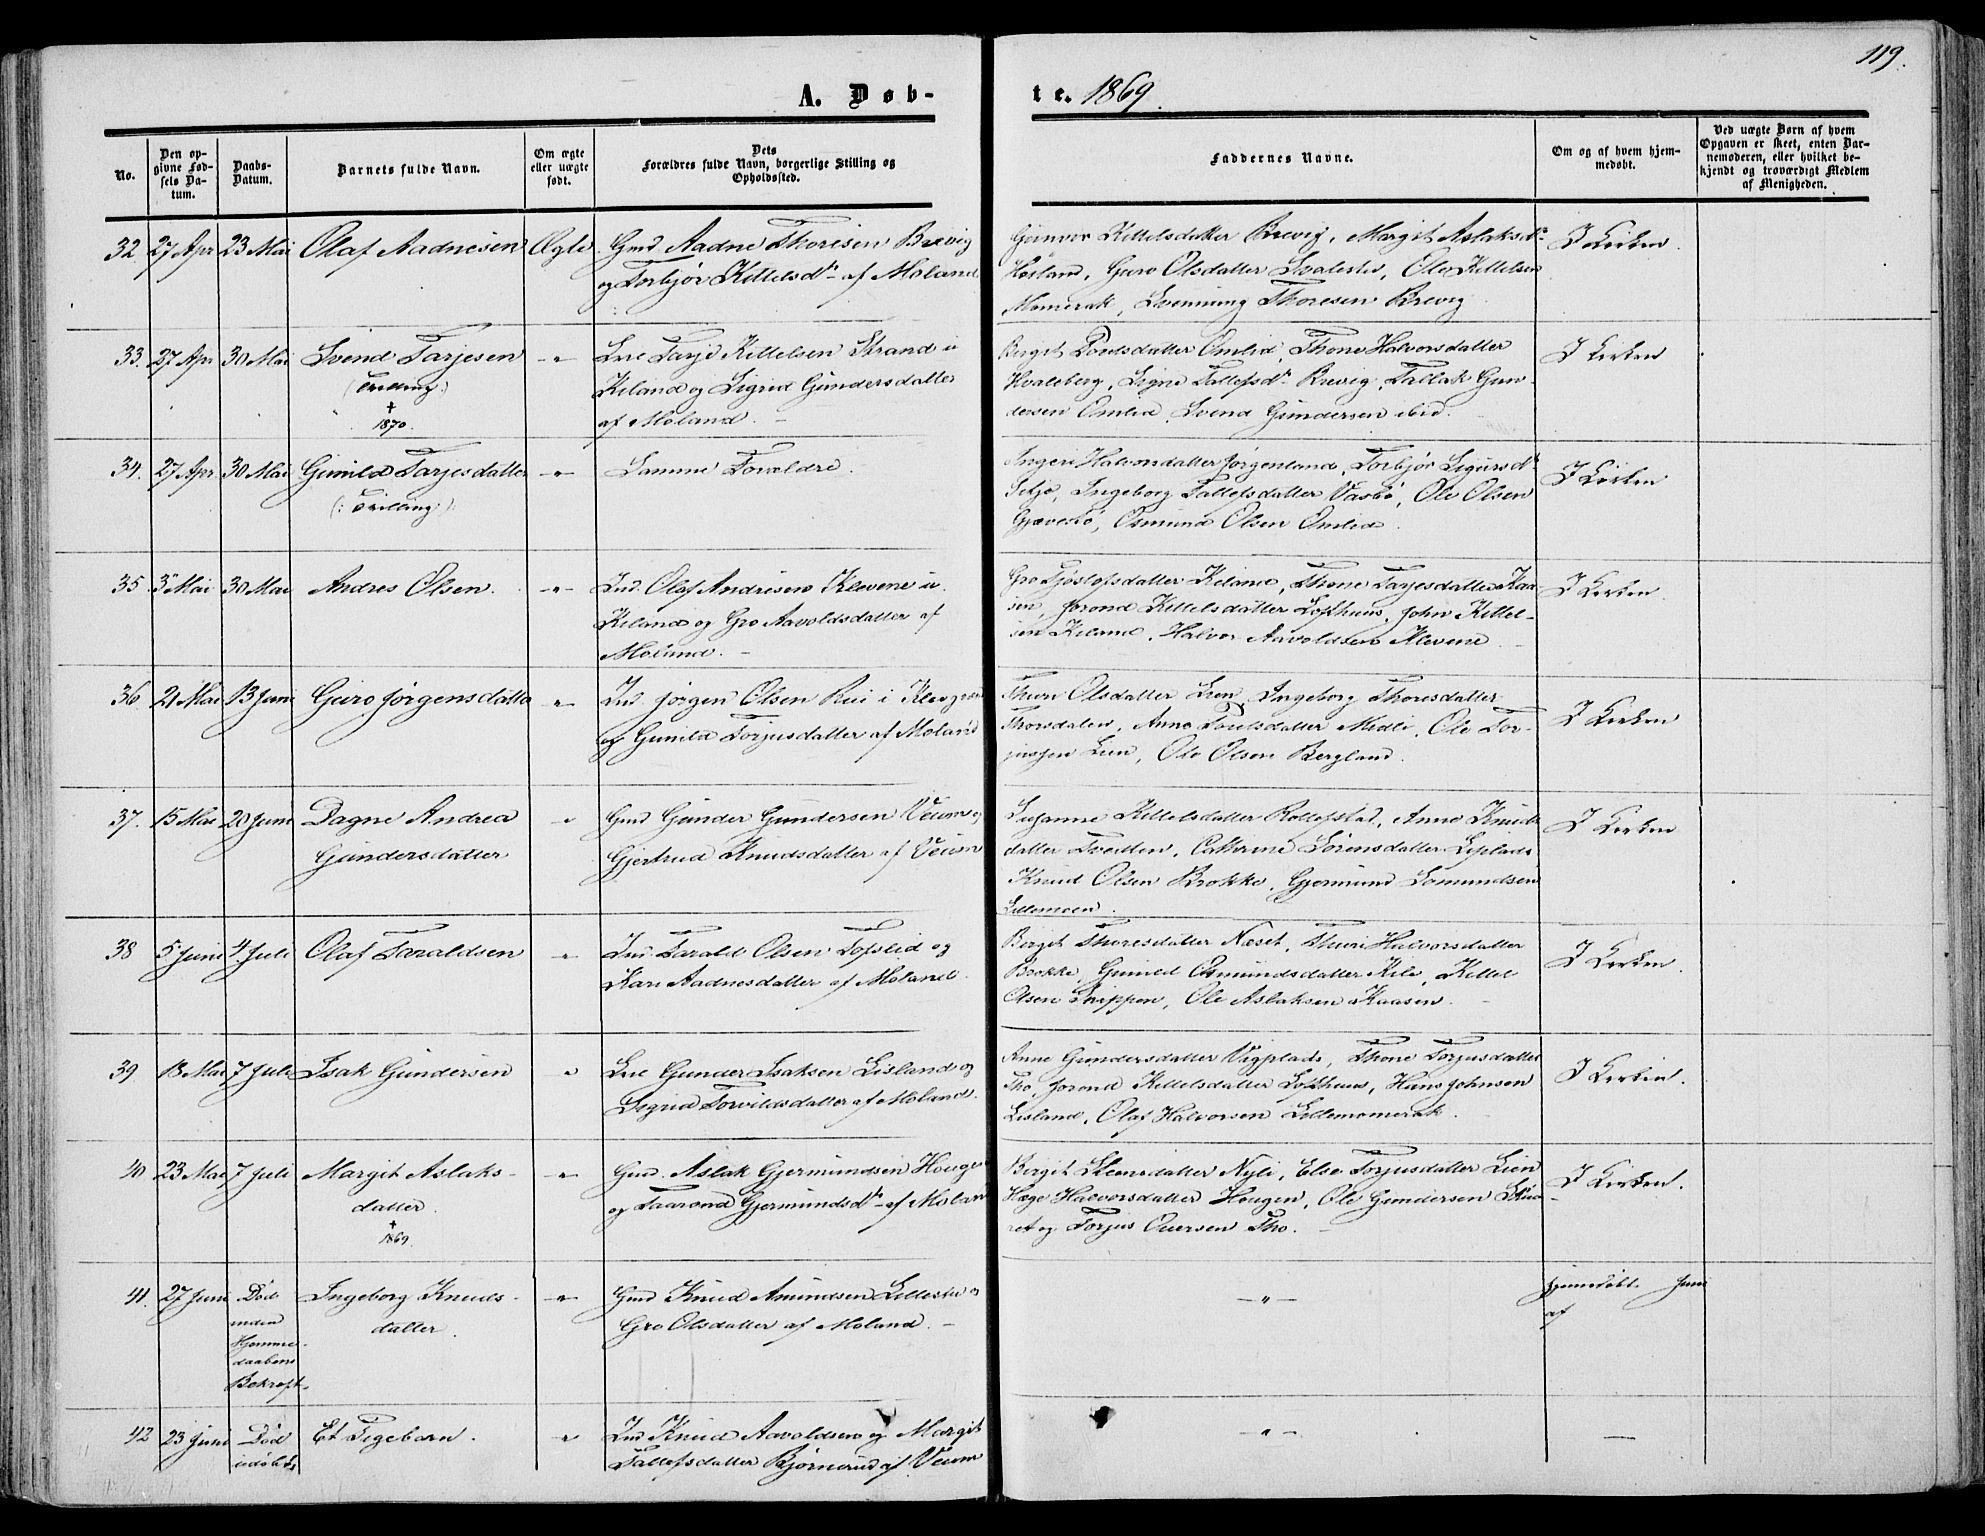 119.
A. Døb-
te. 1869.
No.
Den op-
givne Fød-
sels Da-
tum.
Daabs-
Datum.
Barnets fulde Navn.
Om ægte
eller uægte
født.
Dets
Forældres fulde Navn, borgerlige Stilling og
Opholdssted.
Faddernes Navne.
Om og af hvem hjem-
medøbt.
Ved uægte Børn af hvem
Opgaven er skeet, enten Bar-
nemoderen, eller hvilket be-
kjendt og troværdigt Medlem
af Menigheden.
32 27 Apr 23 Mai Olaf Aadnesen Ægte Gmd Aadne Thoresen Brevig
og Torbjør Kittelsdr af Moland
Gunvor Kittelsdatter Brevig, Margit Aslaksdr
Høiland, Guro Olsdatter, Ole Kittelsen
Momerak, Svenning Thoresen Brevig
I Kirken.
33. 27 Apr 30 Mai Svend Tarjesen
(Tvilling:)
†
1870.
-"- Tarje Kittelsen Strand u
Kiland og Sigrid Gundersdatter
af Moland. -
Birgit Omlid, Thone Halvorsdatter
Hvaleberg, Signe Tallefsdr Brevig, Tallak Gun-
dersen Omlid, Svend Gundersen ibid.
I Kirken
34. 27 Apr 30 Mai Gunild Tarjesdatter
(: Tvilling :)
-"- Samme Forældre.
Ingeri Halvorsdatter Jørgenland, Torbjør Sigursdr
Ingeborg Tallefsdatter Vasbø, Ole Olsen
Osmund Olsen Omlid.
I Kirken
35 3 Mai 30 Mai Andres Olsen. -"- Ind. Olaf Andresen Klevene u.
Kiland og Gro Aavoldsdatter af
Moland. -
Gro Kiland, Thone Tarjesdatter Kaa-
sen, Jorond Kittelsdatter Lofthuus, John Kittel-
sen Kiland, Halvor Aavoldsen Klevene.
I Kirken
36 21 Mai 13 Juni Guro Jørgensdatter " Ind Jørgen Olsen Rui i
og Gunild Torjusdatter af Moland
Thuri Olsdatter Lien, Ingeborg Thoresdatter
Thorsdalen, Anne Midli, Ole Tor-
jusen Lien, Ole Olsen Bergland.
I Kirken
37. 15 Mai 20 Juni Dagne Andrea
Gundersdatter
" Gmd Gunder Gundersen Veum og
Gjertrud Knudsdatter af Veum
Susanne Kittelsdatter Rollefstad, Anne Knuds
datter Tvedten, Cathrine Sørensdatter
Knud Olsen Brokke, Gjermund
Lillemoen.
I Kirken
38 5 Juni 4 Juli Olaf Taraldsen " Ind Tarald Olsen Tofslid og
Kari Aadnesdatter af Moland.
Birgit Thoresdatter Næset, Thuri Halvorsdatter
Brokke, Gunild Osmundsdatter Kile, Kittel
Olsen Ole Aslaksen Kaasen.
I Kirken.
39 13 Mai 7 Juli Isak Gundersen " Gunder Isaksen Lisland og
Sigrid Torvildsdatter af Moland.
Anne Gundersdatter Vigplads, Thone Torjusdatter
Tho, Jorond Kittelsdatter Lofthuus, Hans Johnsen
Lisland, Olaf Halvorsen Lillemomerak.
I Kirken.
40 23 Mai 7 Juli Margit Aslaks-
datter.
†
1869.
" Gmd. Aslak Gjermundsen Hougen
og Taarond Gjermundsdr af Moland
Birgit Nyli, Else Torjusdatter Lien
Hæge Halvorsdatter Hougen, Ole Gundersen
og Torjus Tho. -
I Kirken.
41. 27 Juni Død
inden
Hjemme-
daabens
Bekræft.
Ingeborg Knuds-
datter.
-"- Gmd Knud Amundsen og
Gro Olsdatter af Moland. -
-"-
Hjemmedøbt Juni
af
42 23 Juni Død
udøbt
Et Pigebarn. " Ind Knud Aavoldsen og Margit
Tallefsdatter Bjørnerud af Veum
-"- —